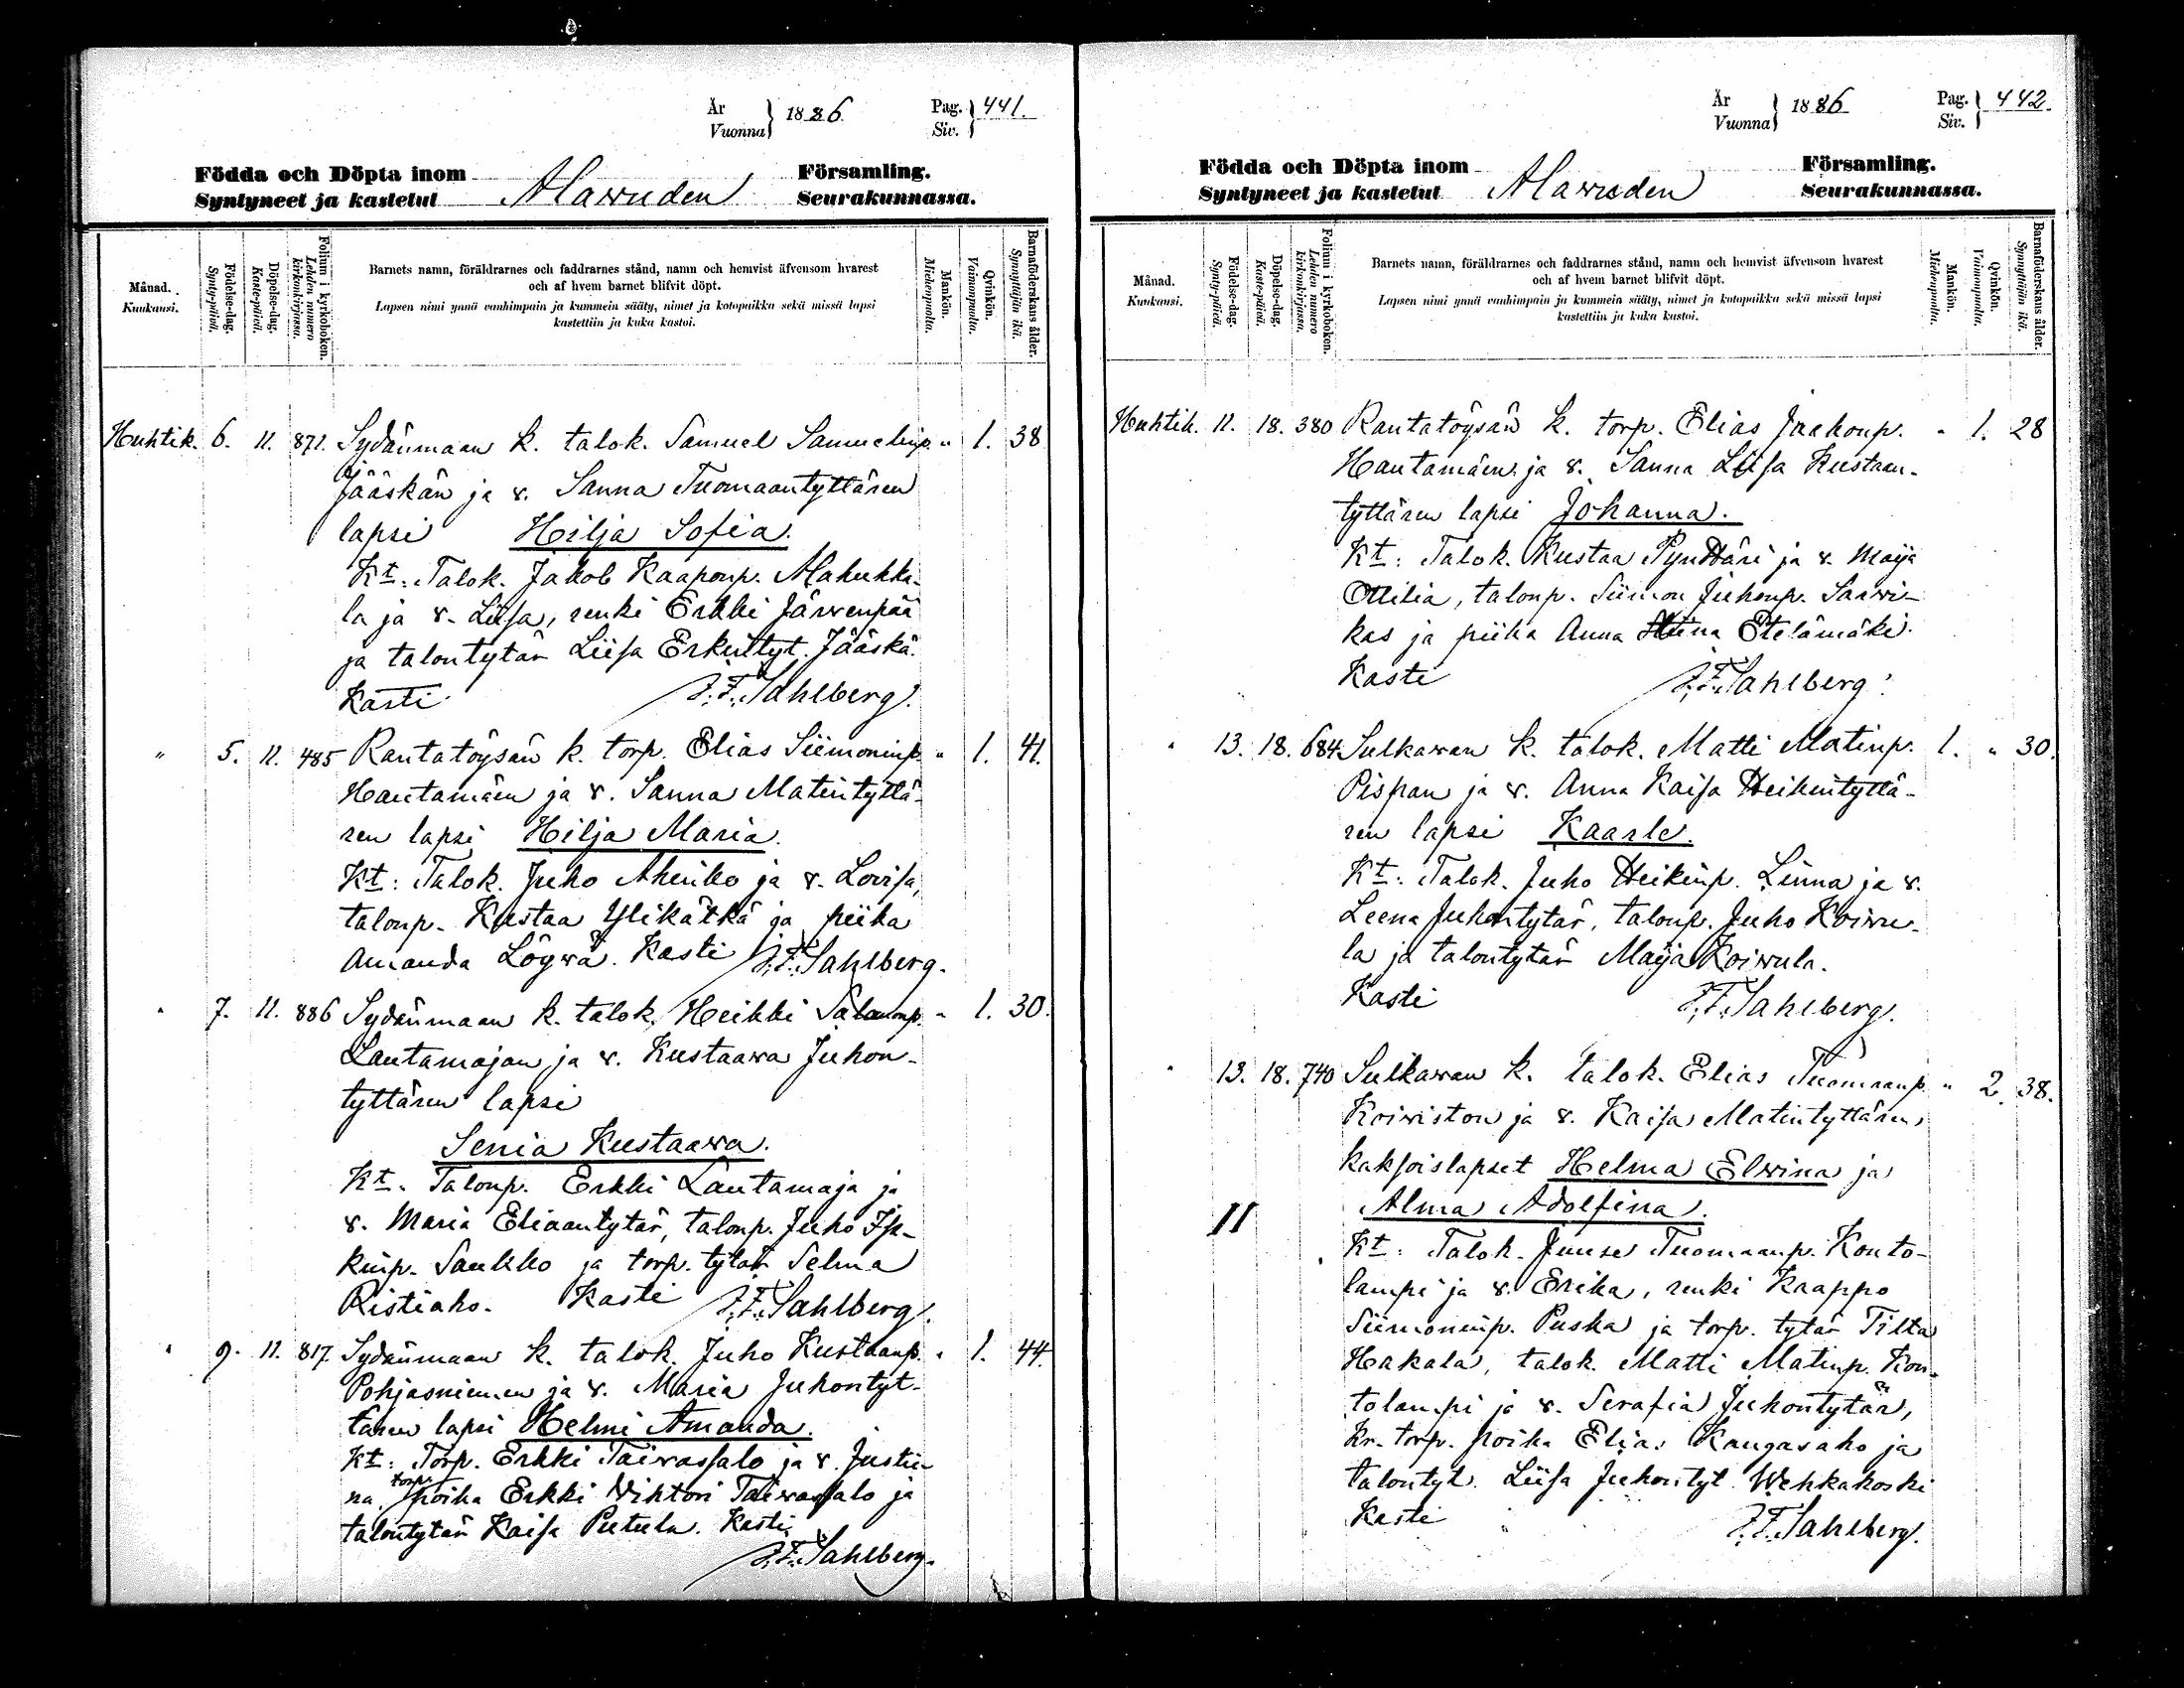 År
Vuonna } 1886 Pag.
Siv. } 441.
Födda och Döpta inom Församling.
Syntyneet ja kastetut Alawuden Seurakunnassa.
Månad.
Kuukausi.
Födelse-dag.
Synty-päivä.
Döpelse-dag.
Kaste-päivä.
Folium i kyrkoboken.
Lehden numero
kirkonkirjassa.
Barnets namn, föräldrarnes och faddrarnes stånd, namn och hemvist äfvensom hvarest
och af hvem barnet blifvit döpt.
Lapsen nimi ynnä vanhimpain ja kummein sääty, nimet ja kotopaikka sekä missä lapsi
kastettiin ja kuka kastoi.
Mankön.
Miehenpuolta.
Qvinkön.
Vaimonpuolta.
Barnaföderskans ålder.
Synnyttäjän ikä.
Huhtik. 6. 11. 871. Sydänmaan k. talok. Samuel Samuelinp. " 1. 38
Jääskän ja v. Sanna Tuomaantyttären
lapsi Hilja Sofia.
Kt: Talok. Jakob Kaaponp. Alahukka-
la ja v. Liisa, renki Erkki Järwenpää
ja talontytär Liisa Erkintyt. Jääskä.
Kasti J.F. Sahlberg.
" 5. 11. 485 Rantatöysän k. torp. Elias Siimoninp. " 1. 41.
Hautamäen ja v. Sanna Matintyttä-
ren lapsi Hilja Maria.
Kt: Talok. Juho Aheikko ja v. Lovisa,
talonp. Kustaa Ylikätkä ja piika
Amanda Lögwä. Kasti J.F. Sahlberg.
" 7. 11. 886 Sydänmaan k. talok. Heikki Salomonp. " 1. 30.
Lautamajan ja v. Kustaawa Juhon-
tyttären lapsi
Senia Kustaawa.
Kt. Talonp. Erkki Lautamaja ja
v. Maria Eliaantytär, talonp. Juho Is-
kinp. Saukko ja torp. tytär Selma
Ristiaho. Kasti J.F. Sahlberg.
" 9. 11. 817. Sydänmaan k. talok. Juho Kustaanp. " 1. 44.
Pohjasniemen ja v. Maria Juhontyt-
tären lapsi Helmi Amanda.
Kt: Torp. Erkki Taiwassalo ja v. Justii-
na, torp. poika Erkki Wiktori Taiwassalo ja
talontytär Kaisa Putula. Kasti
J.F. Sahlberg.
År
Vuonna } 1886 Pag.
Siv. } 442.
Födda och Döpta inom Församling.
Syntyneet ja kastetut Alawuden Seurakunnassa.
Månad.
Kuukausi.
Födelse-dag.
Synty-päivä.
Döpelse-dag.
Kaste-päivä.
Folium i kyrkoboken.
Lehden numero
kirkonkirjassa.
Barnets namn, föräldrarnes och faddrarnes stånd, namn och hemvist äfvensom hvarest
och af hvem barnet blifvit döpt.
Lapsen nimi ynnä vanhimpain ja kummein sääty, nimet ja kotopaikka sekä missä lapsi
kastettiin ja kuka kastoi.
Mankön.
Miehenpuolta.
Qvinkön.
Vaimonpuolta.
Barnaföderskans ålder.
Synnyttäjän ikä.
Huhtik. 11. 18. 380 Rantatöysän k. torp. Elias Jaakonp. " 1. 28
Hautamäen ja v. Sanna Liisa Kustaan-
tyttären lapsi Johanna.
Kt: Talok. Kustaa Pynttäri ja v. Maija
Ottilia, talonp. Siimon Juhonp. Sarwi-
kas ja piika Anna Etelämäki.
Kasti J.F. Sahlberg.
" 13. 18. 684 Sulkawan k. talok. Matti Matinp. 1. " 30.
Pispan ja v. Anna Kaisa Heikintyttä-
ren lapsi Kaarle.
Kt: Talok. Juho Heikinp. Linna ja v.
Leena Juhontytär, talonp. Juho Koiwu-
la ja talontytär Maija Koiwula.
Kasti J.F. Sahlberg.
" 13. 18. 740 Sulkawan k. talok. Elias Tuomaanp. " 2. 38.
Koiwiston ja v. Kaisa Matintyttären
kaksoislapset Helma Elwina ja
II Alma Adolfina.
Kt: Talok. Juuse Tuomaanp. Konto-
lampi ja v. Erika, renki Kaappo
Siimoninp. Puska ja torp. tytär Tilta
Hakala, talok. Matti Matinp. Kon-
tolampi ja v. Serafia Juhontytär,
Kr. torp. poika Elias Kangasaho ja
talontyt. Liisa Juhontyt. Wehkakoski
Kasti J.F. Sahlberg.